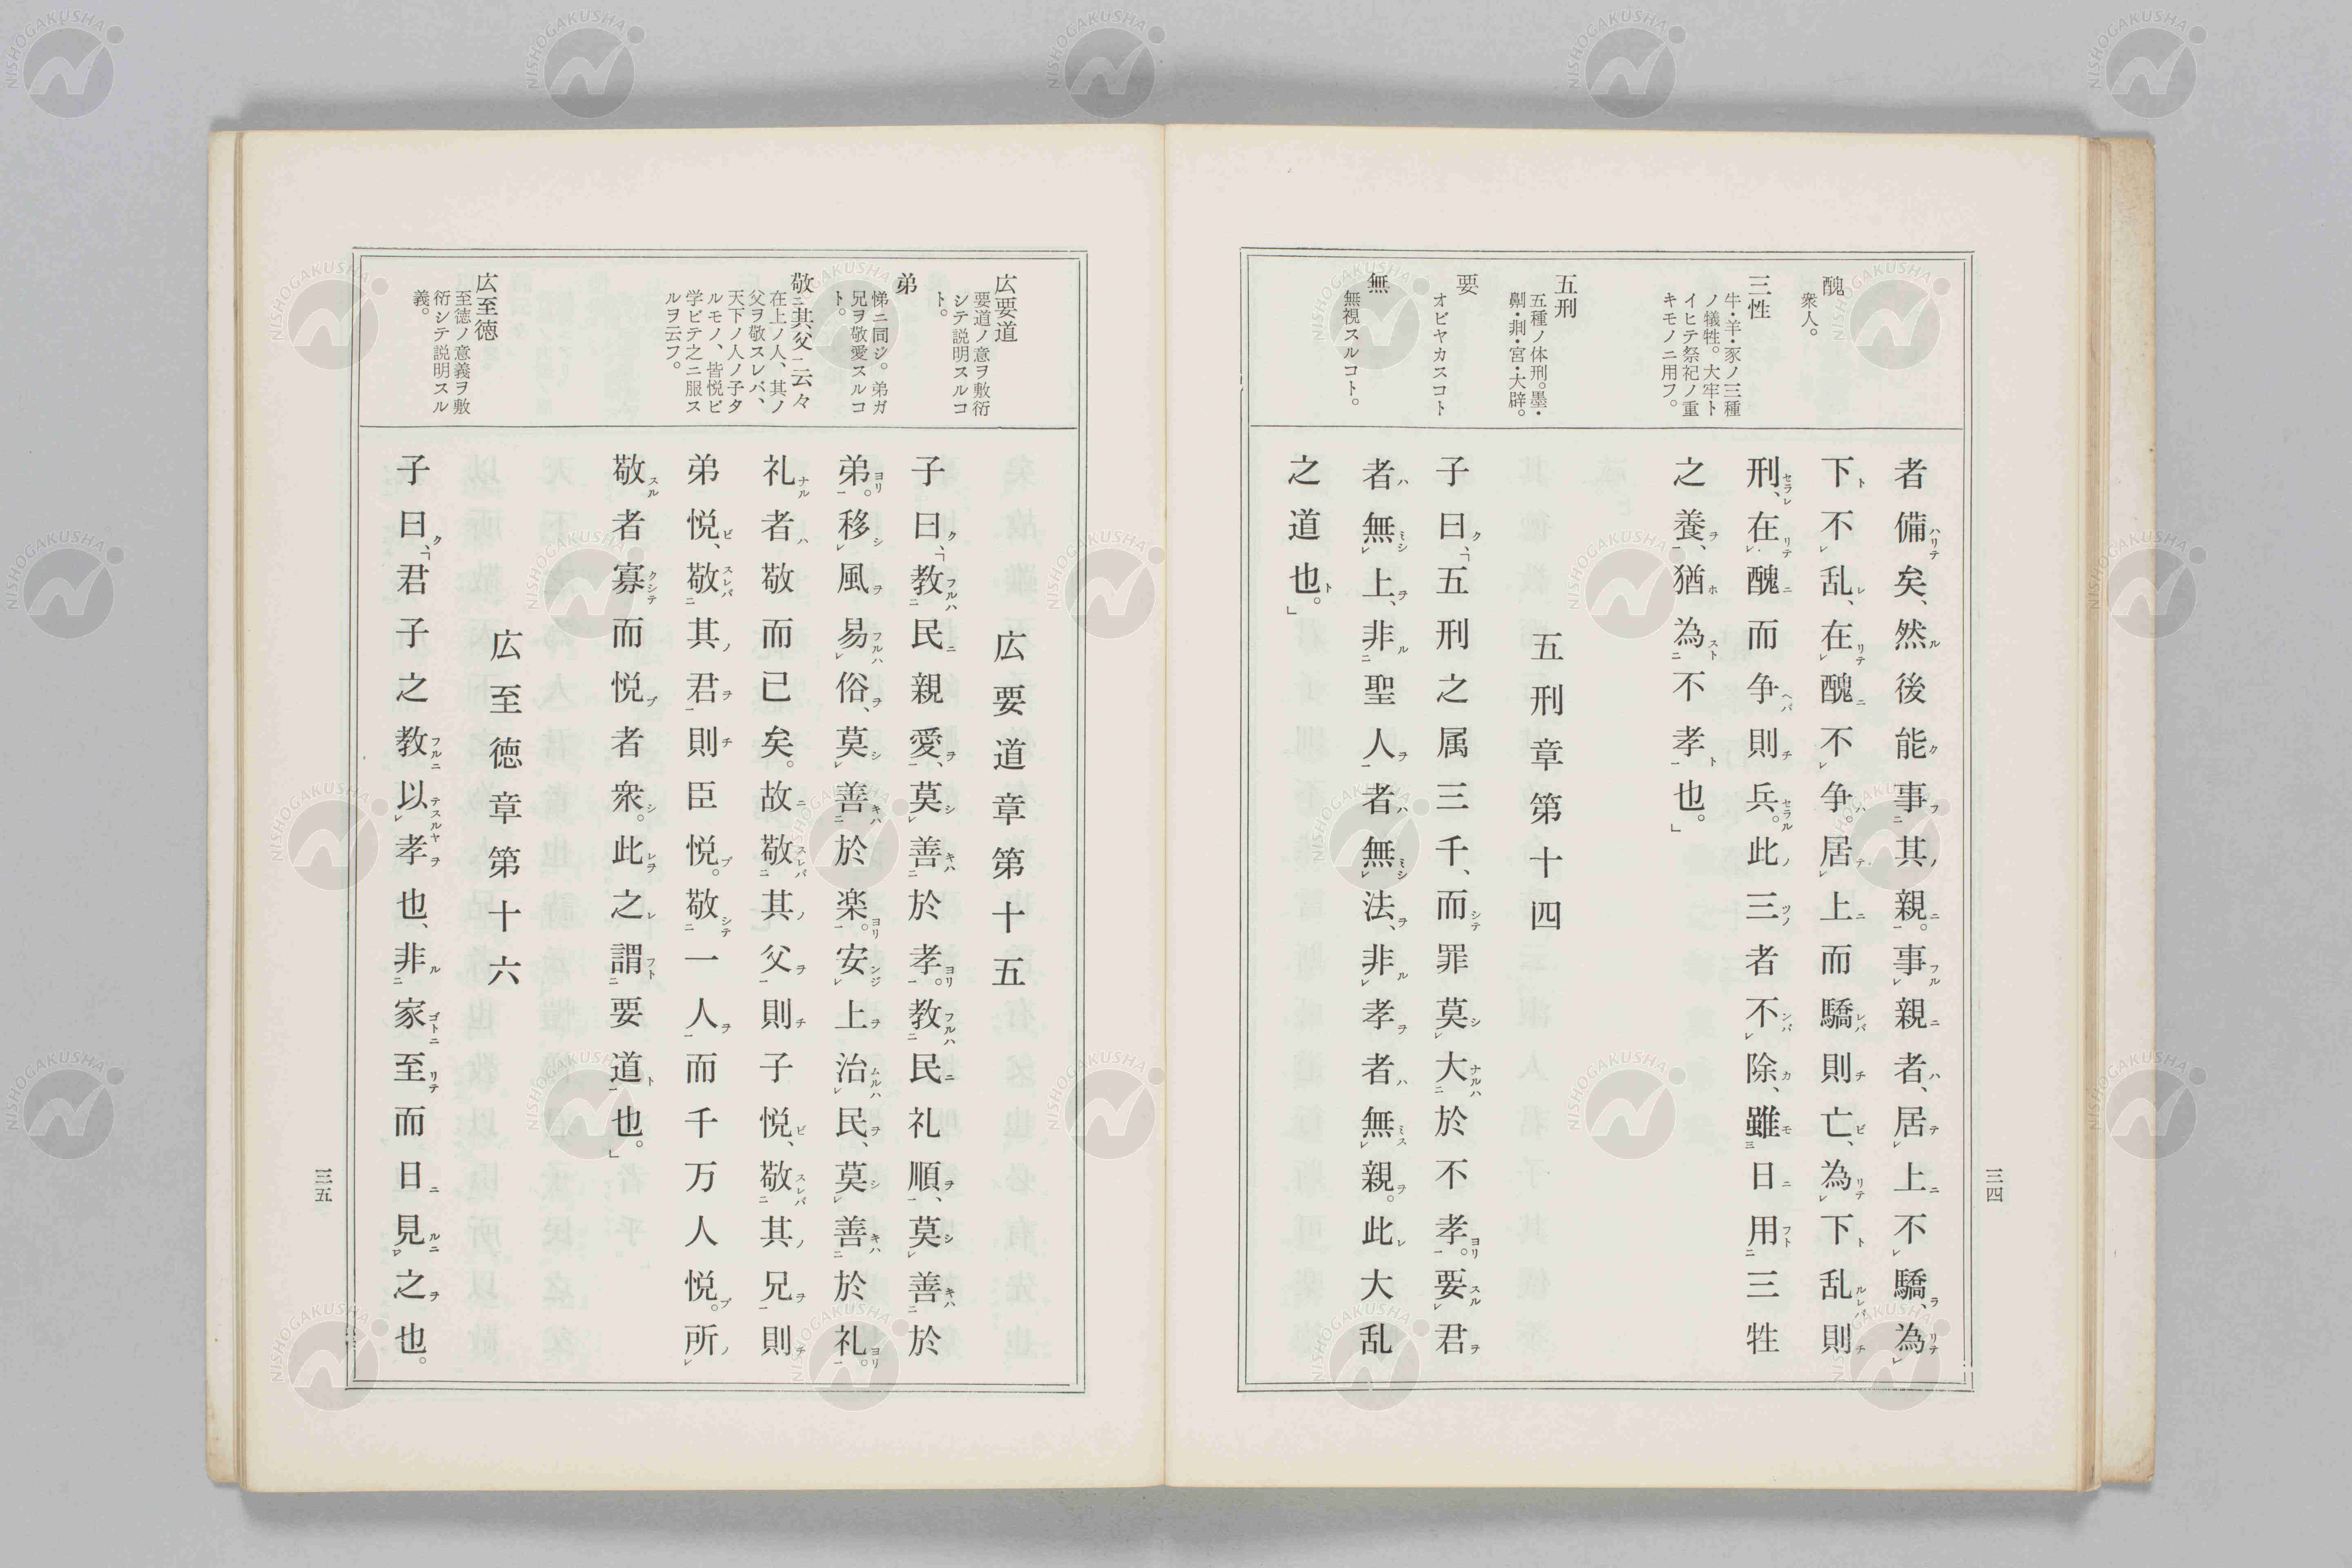 醜
衆人。
三性
牛・羊・豕ノ三種
ノ犠牲。大牢ト
イヒテ祭祀ノ重
キモノニ用フ。
五刑
五種ノ体刑。墨・
劓・剕・宮・大辟。
要
オビヤカスコト
無
無視スルコト。
者備矣、然後能事其親。事親者、居上不驕、為
下不乱、在醜不争。居上而驕則亡、為下乱則
刑、在醜而争則兵。此三者不除、雖日用三牲
之養、猶為不孝也。」
五刑章第十四
子曰、「五刑之属三千、而罪莫大於不孝。要君
者無上、非聖人者無法、非孝者無親。此大乱
之道也。」
三四
広要道
要道ノ意ヲ敷衍
シテ説明スルコ
ト。
弟
悌ニ同ジ。弟ガ
兄ヲ敬愛スルコ
ト。
敬ニ其父一云々
在上ノ人、其ノ
父ヲ敬スレバ、
天下ノ人ノ子タ
ルモノ、皆悦ビ
学ビテ之ニ服ス
ルヲ云フ。
広至徳
至徳ノ意義ヲ敷
衍シテ説明スル
義。
広要道章第十五
子曰、「教民親愛、莫善於孝。教民礼順、莫善於
弟。移風易俗、莫善於楽。安上治民、莫善於礼。
礼者敬而已矣。故敬其父則子悦、敬其兄則
弟悦、敬其君則臣悦。敬一人而千万人悦。所
敬者寡而悦者衆。此之謂要道也。」
広至徳章第十六
子曰、「君子之教以孝也、非家至而日見之也。
三五
NISHOGAKUSHA